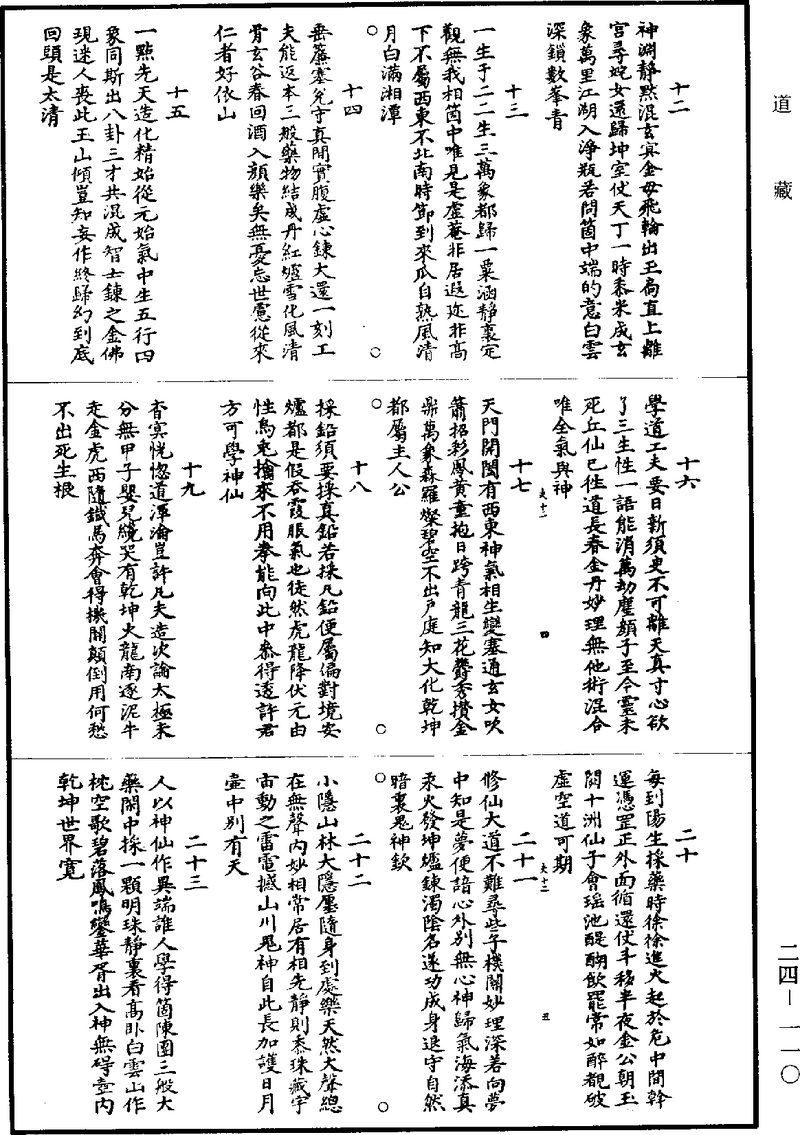 道藏
十二
神淵靜默混玄冥金母飛輪出玉扃直上離
宮尋姹女還歸坤室仗天丁一時黍米成玄
象萬里江湖入淨瓶若問箇中端的意白雲
深鎖數峯青
十三
一生于二二生三萬象都歸一粟涵靜裏定
觀無我相箇中唯見是虛菴非居遐迩非高
下不屬西東不北南時節到來瓜自熟風清
月白滿湘潭
○
○
十四
垂簾塞兊守真閒實腹虛心鍊大還一刻工
夫能返本三般藥物結成丹紅爐雪化風清
骨玄谷春回酒入顔樂矣無憂忘世慮從來
仁者好依山
十五
一點先天造化精始從元始氣中生五行四
象同斯出八卦三才共混成智士鍊之金佛
現迷人喪此玉山傾豈知妄作終歸幻到底
回頭是太清
十六
學道工夫要日新須臾不可離天真寸心欲
了三生性一語能消萬劫塵顔子至今靈未
死丘仙已徃道長春金丹妙理無他術混合
唯全氣與神
夫十二
四
十七
天門開闔有西東神氣相生變塞通玄女吹
簫招彩鳳黄童抱日跨青龍三花欝秀攢金
鼎萬象森羅燦碧空不出戶庭知大化乾坤
都屬主人公
○
○
十八
採鉛須要採真鉛若採凡鉛便屬偏對境安
爐都是假吞霞服氣也徒然虎龍降伏元由
性烏兎擒來不用拳能向此中叅得透許君
方可學神仙
十九
杳冥恍惚道渾淪豈許凡夫造次論太極未
分無甲子嬰兒纔哭有乾坤火龍南逐泥牛
走金虎西隨鐵馬奔會得機關顛倒用何愁
不出死生根
二十
每到陽生採藥時徐徐進火起於危中間斡
運憑罡正外面循還仗斗移半夜金公朝玉
闕十洲仙子會瑶池醍醐飲罷常如醉覷破
虛空道可期
夫十二
五
二十一
修仙大道不難尋些子機關妙理深若向夢
中知是夢便諳心外别無心神歸氣海添真
汞火發坤爐鍊濁陰名遂功成身退守自然
暗裏鬼神欽
○
○
二十二
小隱山林大隱鄽隨身到處樂天然大聲總
在無聲內妙相常居有相先靜則黍珠藏宇
宙動之雷電撼山川鬼神自此長加護日月
壷中别有天
二十三
人以神仙作異端誰人學得箇陳團三般大
藥閑中採一顆明珠靜裏看高卧白雲山作
枕空歌碧落鳳鳴鑾華胥出入神無碍壷內
乾坤世界寛
二四－一一〇